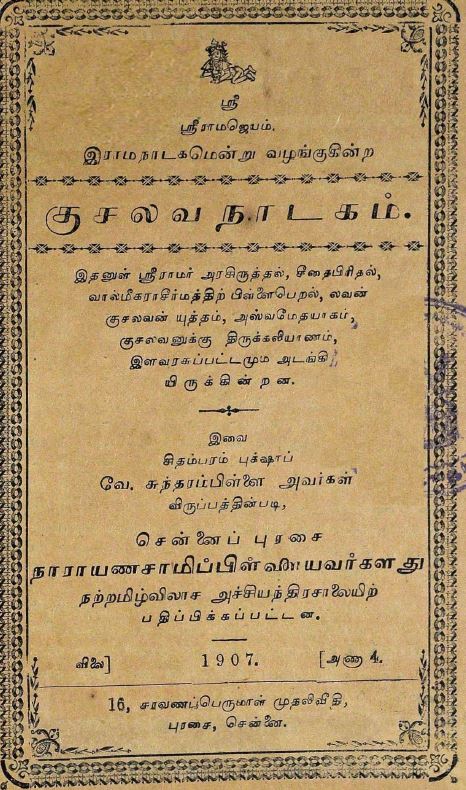 ஸ்ரீ
ஸ்ரீராமஜெயம்.
இராமநாடகமென்று வழங்குகின்ற
குசலவநாடகம்.
இதனுள் ஸ்ரீராமர் அரசிருத்தல், சீதைபிரிதல்,
வால்மீகராசிர்மத்திற் பிள்ளைபெறல், லவன்
குசலவன் யுத்தம், அஸ்வமேதயாகம்,
குசலவனுக்கு திருக்கலியாணம்,
இளவரசுப்பட்டமும் அடங்கி
யிருக்கின்றன.
இவை
சிதம்பரம் புக்ஷாப்
வே. சுந்தரம்பிள்ளை அவர்கள்
விருப்பத்தின்படி,
சென்னைப் புரசை
நாராயணசாமிப்பிள்ளையவர்களது
நற்றமிழ்விலாச அச்சியந்திரசாலையிற்
பதிப்பிக்கப்பட்டன.
விலை] 1907. [அணா 4.
16, சரவணப்பெருமாள் முதலிவீதி,
புரசை, சென்னை.